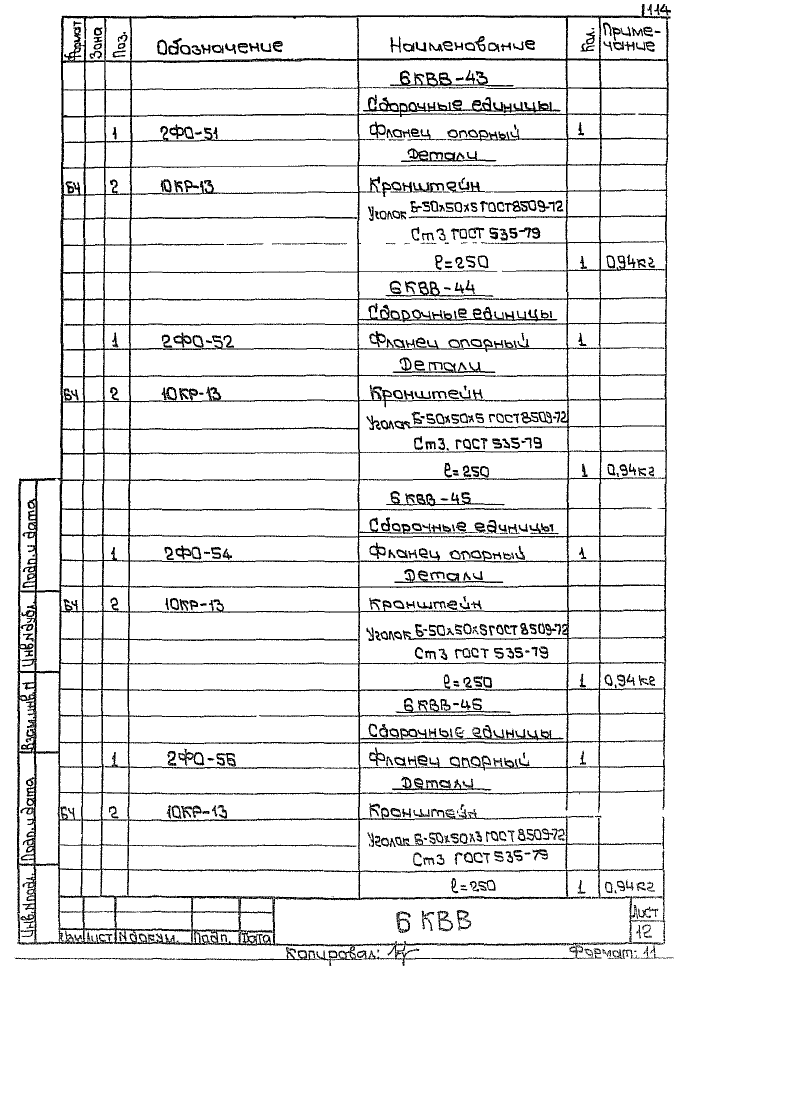 1114
Формат Зона Поз. Обозначение Наименование Кол. Приме-
чание
6КВВ-43
Сборочные единицы
1 2ФО-51 Фланец опорный 1
Детали
БЧ 2 10КР-13 Кронштейн
Уголок Б-50х50х5 ГОСТ 8509-72
Ст3 ГОСТ 535-79
ℓ=250 1 0,94кг
6КВВ-44
Сборочные единицы
1 2ФО-52 Фланец опорный 1
Детали
БЧ 2 10КР-13 Кронштейн
Уголок Б-50х50х5 ГОСТ 8509-72
Ст3. ГОСТ 535-79
ℓ=250 1 0,94кг
6КВВ-45
Сборочные единицы
1 2ФО-54 Фланец опорный 1
Детали
БЧ 2 10КР-13 Кронштейн
Уголок Б-50х50х5 ГОСТ 8509-72
Ст3 ГОСТ 535-79
ℓ=250 1 0,94кг
6КВВ-46
Сборочные единицы
1 2ФО-56 Фланец опорный 1
Детали
БЧ 2 10КР-13 Кронштейн
Уголок Б-50х50х3 ГОСТ 8509-72
Ст3 ГОСТ 535-79
ℓ=250 1 0,94кг
Подп. и дата
Инв.N дубл.
Взам.инв.N
Подп. и дата
Инв.N подл.
Изм Лист N докум. Подп. Дата
6КВВ
Лист
12
Копировал:
Формат: 11